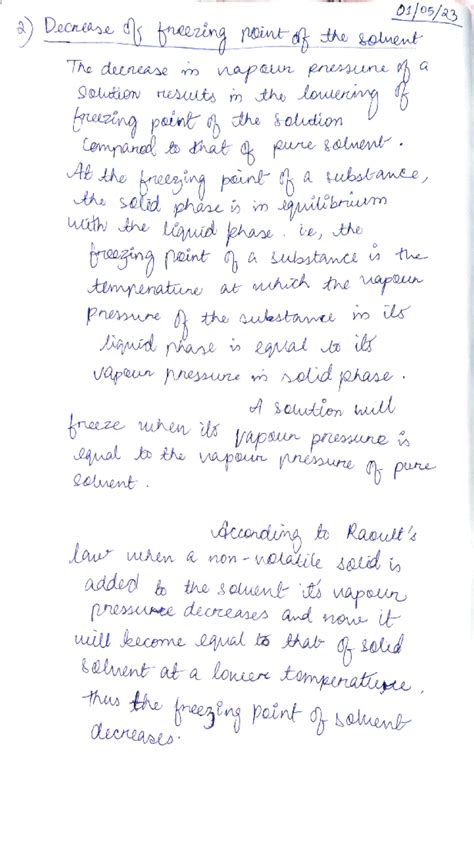 01/05/23
2) Decrease of freezing point of the solvent
The decrease in vapour pressure of a
solution results in the lowering of
freezing point of the solution
compared to that of pure solvent.
At the freezing point of a substance,
the solid phase is in equilibrium
with the liquid phase. ie, the
freezing point of a substance is the
temperature at which the vapour
pressure of the substance in its
liquid phase is equal to its
vapour pressure in solid phase.
A solution will
freeze when its vapour pressure is
equal to the vapour pressure of pure
solvent.
According to Raoult's
law when a non-volatile solid is
added to the solvent it's vapour
pressure decreases and now it
will become equal to that of solid
solvent at a lower temperature,
thus the freezing point of solvent
decreases.